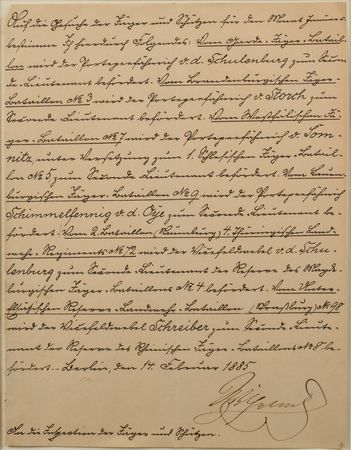 Auf die Gesuche der Jäger und Schützen für den Monat Januar
bestimme Ich hierdurch Folgendes: Vom Garde-Jäger-Batail-
lon wird der Portepeefähnrich v. d. Schulenburg zum Secon-
de-Lieutenant befördert. Vom Brandenburgischen Jäger-
Bataillon № 3 wird der Portepeefähnrich v. Storch zum
Seconde-Lieutenant befördert. Vom Westfälischen Jä-
ger-Bataillon № 7 wird der Portepeefähnrich v. Som-
nitz, unter Versetzung zum 1. Schlesischen Jäger-Batail-
lon № 5 zum Seconde-Lieutenant befördert. Vom Lauen-
burgischen Jäger-Bataillon № 9 wird der Portepeefähnrich
Schimmelfennig v. d. Oye zum Seconde-Lieutenant be-
fördert. Vom 2. Bataillon (Naumburg) 4. Thüringischen Land-
wehr-Regiments № 72 wird der Vicefeldwebel v. d. Schu-
lenburg zum Seconde-Lieutenant der Reserve des Magde-
burgischen Jäger-Bataillons № 4 befördert. Vom Unter-
Elsässischen Reserve-Landwehr-Bataillon (Straßburg) № 98
wird der Vicefeldwebel Schreiber zum Seconde-Lieute-
nant der Reserve des Rheinischen Jäger-Bataillons № 8 be-
fördert. Berlin, den 14. Februar 1885
Wilhelm
An die Inspection der Jäger und Schützen.